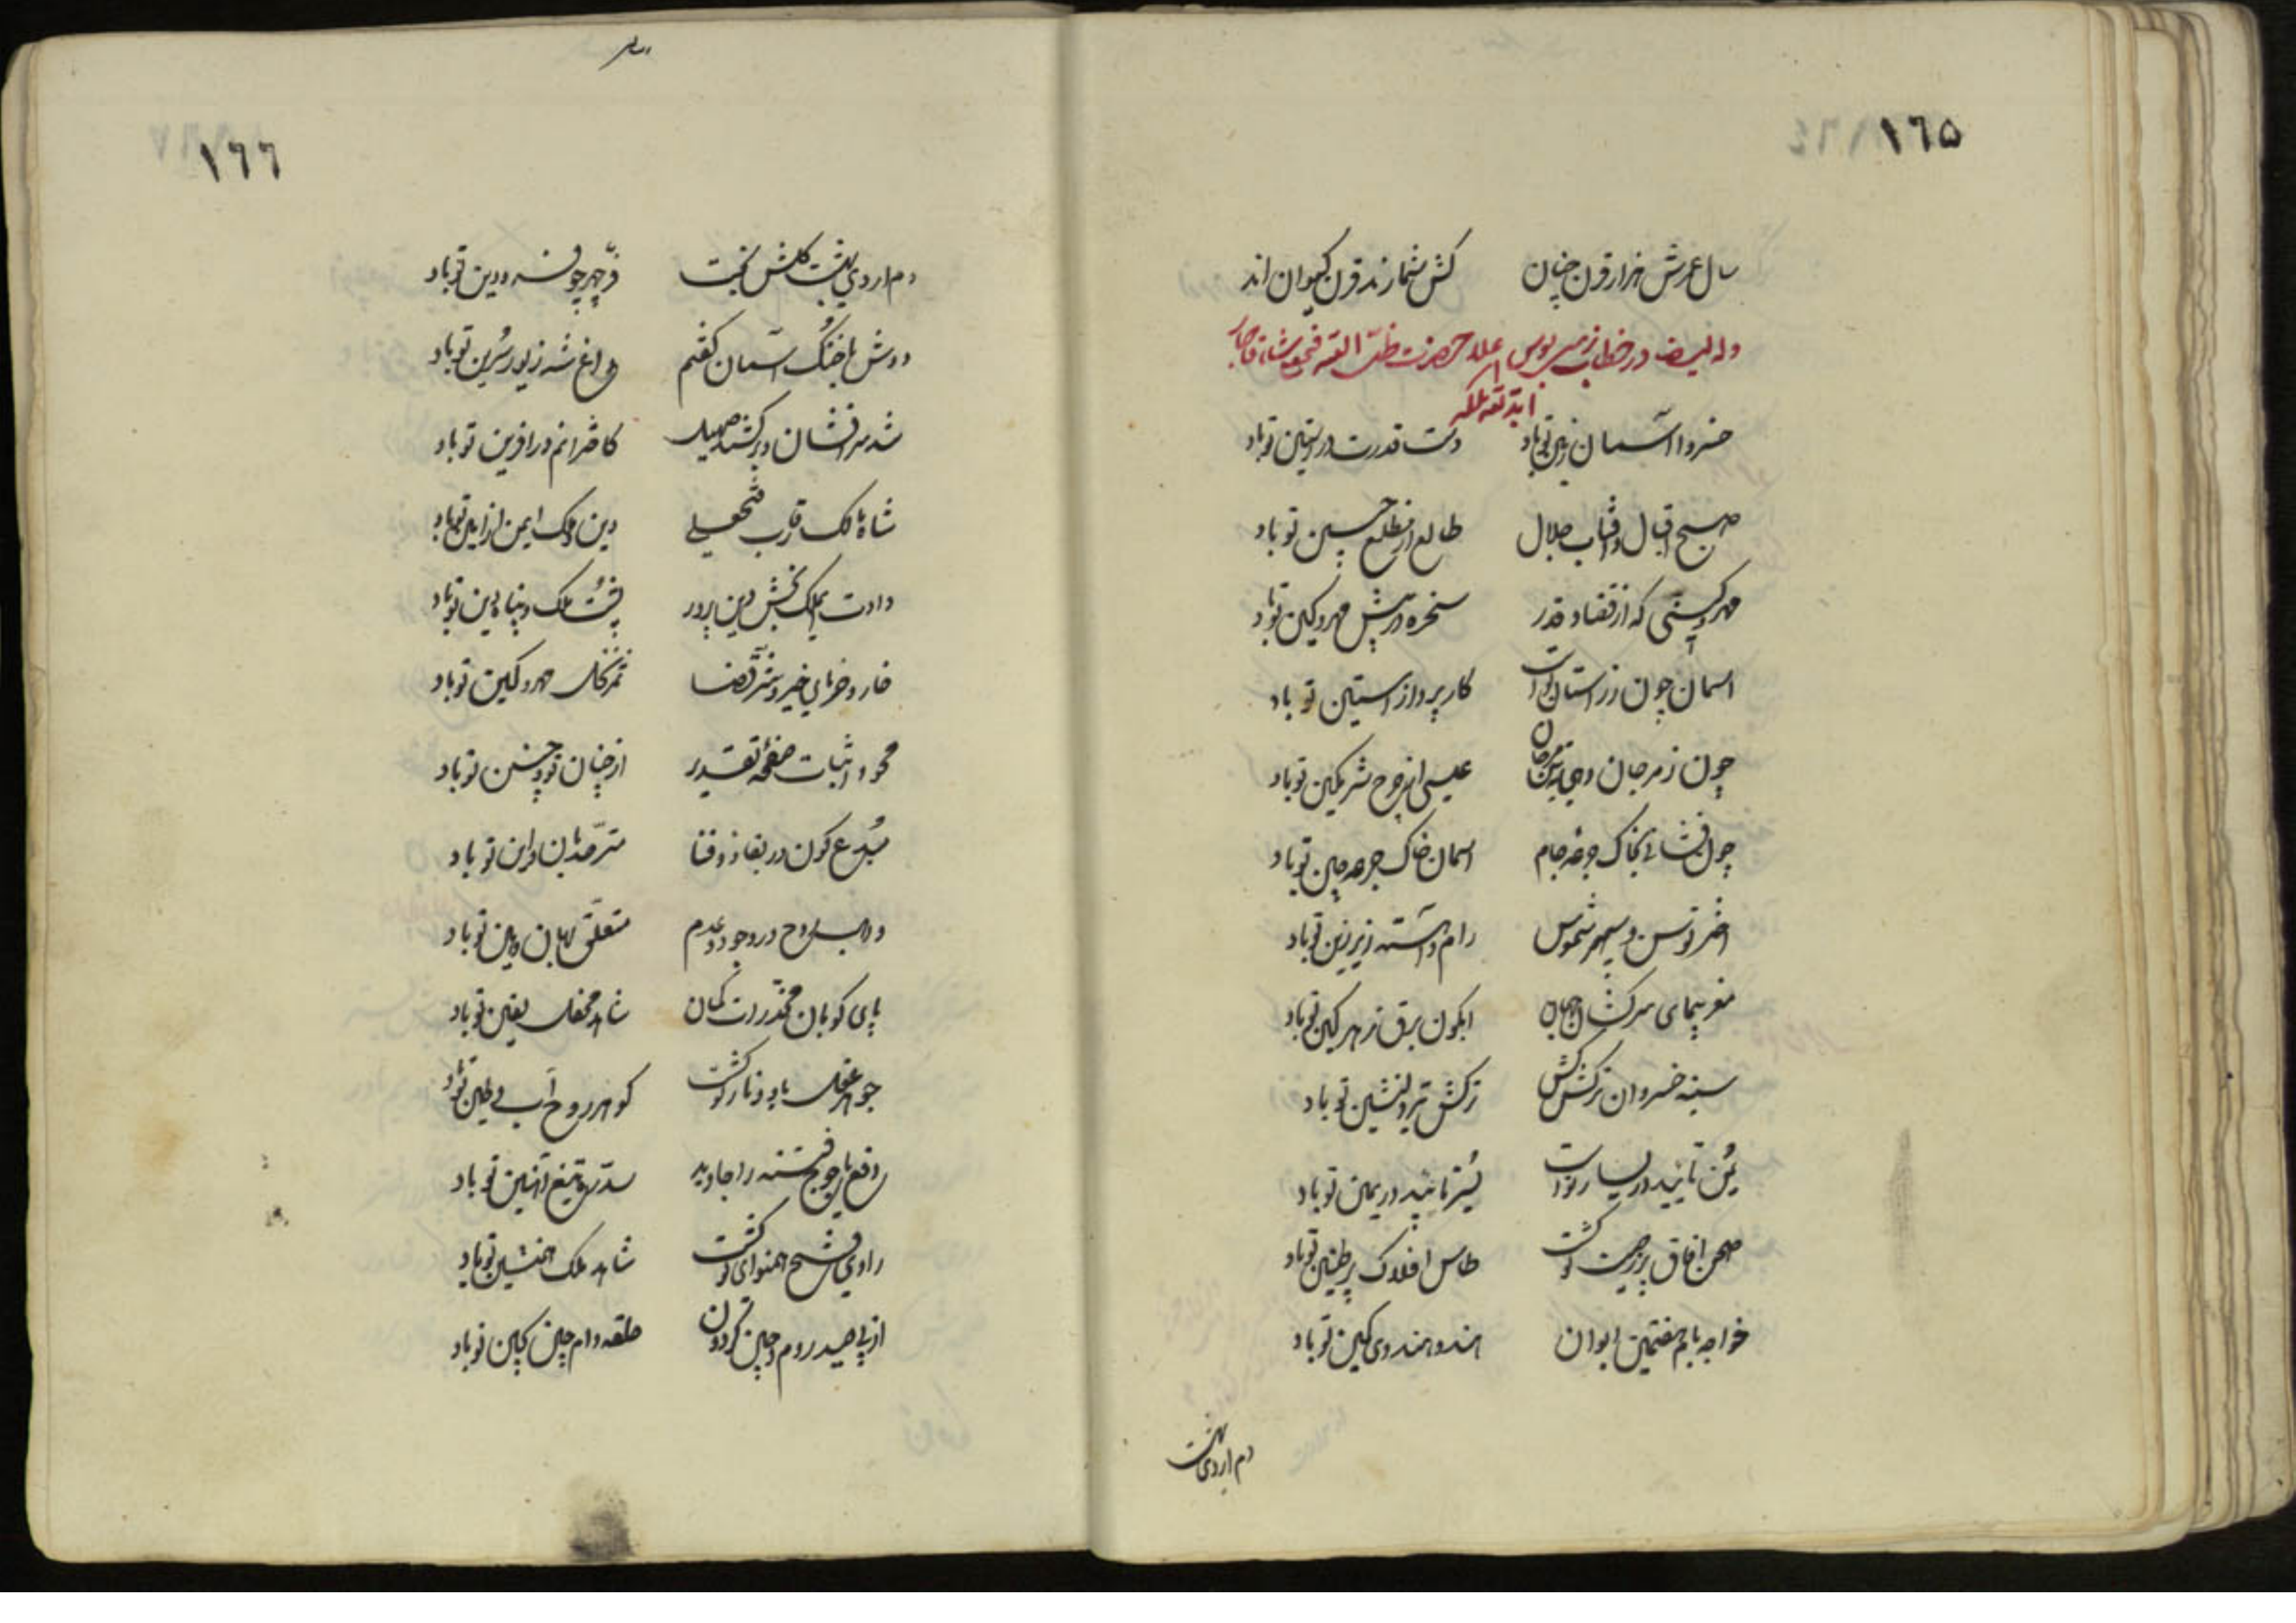 ١٦۵
سال عمرش هزار قرن چنان کش شمارند قرن کیوان اند
وله ایضا در خطاب زمین بوس اعلا حضرت ظل الله فتحعلیشاه قاجار
خسروا آسمان زمین تو باد دست قدرت در آستین تو باد
صبح اقبال و آفتاب جلال طالع از مطلع جبین تو باد
مهر و کینی که از قضا و قدر سخره در پیش مهر و کین تو باد
اسمان چون در آستان تو است کارپرداز آستین تو باد
چون ز مرجان عیسی از روح شرمگین تو باد
چون فشانی بخاک جرعه جام اسمان خاک جرعه چین تو باد
اختر توسن و سپهر شموس رام و آهسته زیر زین تو باد
مغز پیمای سرکشان جهان ابگون برق زهر کین تو باد
سینه خسروان ترکش کش ترکش تیر دلنشین تو باد
یمن تایید در یسار تو است یسر تایید در یمین تو باد
صحن افاق پر ز صیت تو گشت طاس افلاک پر طنین تو باد
خواجه بام هفتمین ایوان هندو هندوی کمین تو باد
دم اردی بهشت
١٦٦
دم اردی بهشت گلشن بخت فر چهر چو فرودین تو باد
دوش با خنگ آسمان گفتم داغ شه زیور سرین تو باد
شد سرافشان و برکشید صهیل کاخرانم در آفرین تو باد
شاه مالک رقاب فتحعلی دین و ملک ایمن از امین تو باد
دادت ملک بخش دین پرور پشت ملک و پناه دین تو باد
خار و خرمای خیر و شر قضا ثمر نخل مهر و کین تو باد
محو و اثبات صفحه تقدیر از چنان تو و چنین تو باد
مبدع کون در بقا و فنا مترصد بان و این تو باد
واهب روح در وجود و عدم متعلق بهان و هین تو باد
پای کوبان مخدرات گمان شاهد محفل یقین تو باد
جوهر عقل باد و نار تو گشت گوهر روح آب و طین تو باد
دفع یاجوج فتنه را جاوید سد ره تیغ آهنین تو باد
راوی فتح همنوای تو گشت شاهد ملک همنشین تو باد
از پی صید روم و چین گردون حلقه دام چین کین تو باد